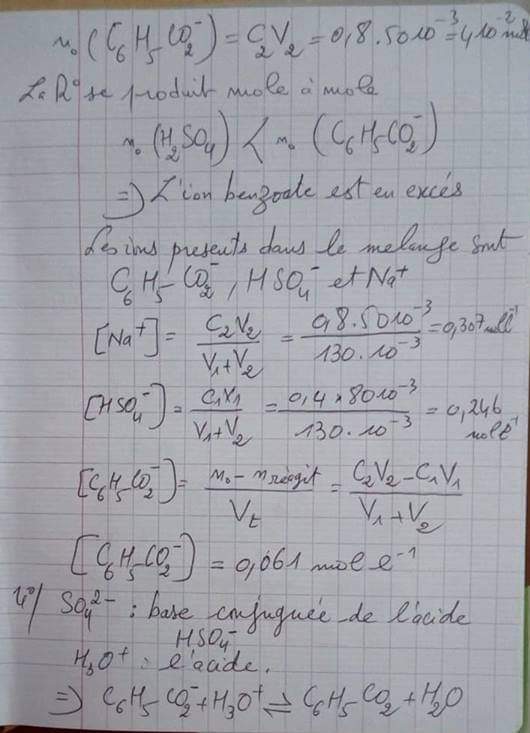 n₀ (C₆H₅CO₂⁻) = C₂V₂ = 0,8.50 10⁻³ = 4 10⁻² mol
La R° se produit mole à mole
n₀ (H₂SO₄) < n₀ (C₆H₅CO₂⁻)
=> L'ion benzoate est en excés
Les ions presents dans le melange sont
C₆H₅-CO₂⁻, HSO₄⁻ et Na⁺
[Na⁺] = C₂V₂ / V₁+V₂ = 0,8.50 10⁻³ / 130.10⁻³ = 0,307 mol l⁻¹
[HSO₄⁻] = C₁V₁ / V₁+V₂ = 0,4 × 80 10⁻³ / 130.10⁻³ = 0,246 mol l⁻¹
[C₆H₅CO₂⁻] = n₀ - n réagit / Vt = C₂V₂ - C₁V₁ / V₁+V₂
[C₆H₅CO₂⁻] = 0,061 mol l⁻¹
4°/ SO₄²⁻ : base conjuguée de l'acide
HSO₄⁻
H₃O⁺ : l'acide.
=> C₆H₅CO₂⁻ + H₃O⁺ ⇌ C₆H₅CO₂ + H₂O